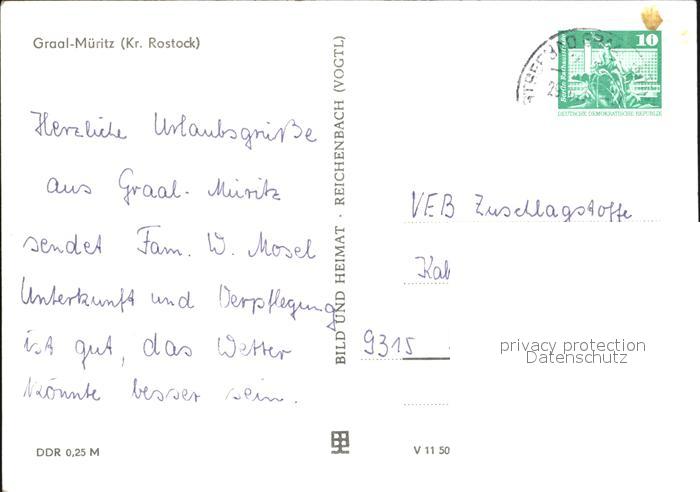 Graal-Müritz (Kr. Rostock)
Herzliche Urlaubsgrüße
aus Graal-Müritz
sendet Fam. W. Mosel
Unterkunft und Verpflegung
ist gut, das Wetter
könnte besser sein.
DDR 0,25 M
BILD UND HEIMAT · REICHENBACH (VOGTL)
V 11 50
10
Berlin Rathausstraße
DEUTSCHE DEMOKRATISCHE REPUBLIK
VEB Zuschlagstoffe
Kal
9315
privacy protection
Datenschutz